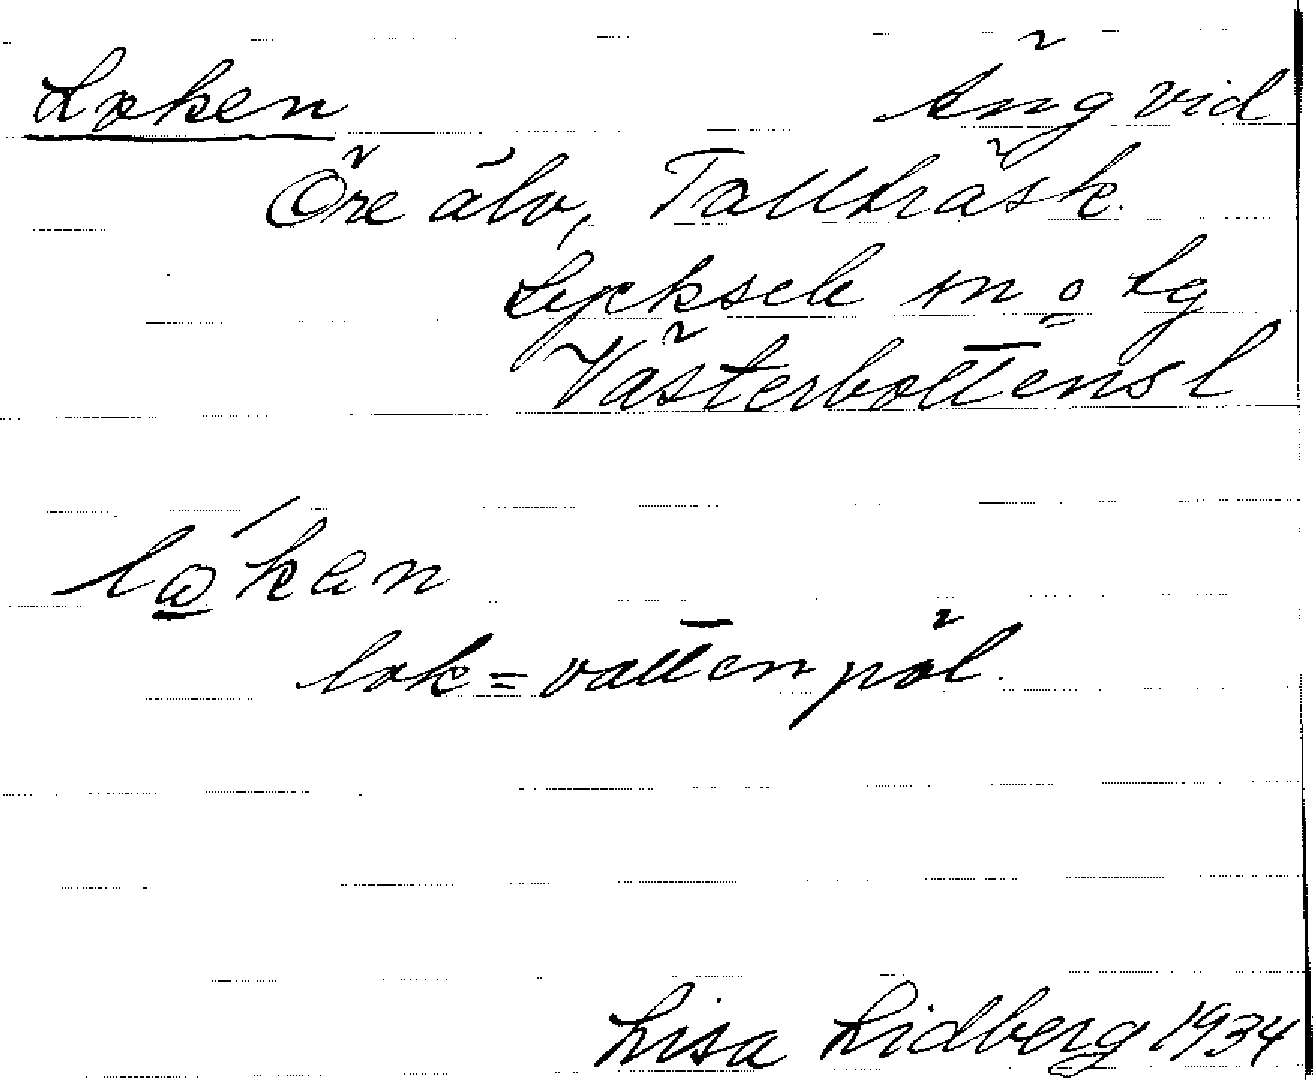 Loken Äng vid
Öre älv, Tallträsk.
Lycksele sn o lg
Västerbottensl
lo̲´ken
lok = vattenpöl.
Lisa Lidberg 1934